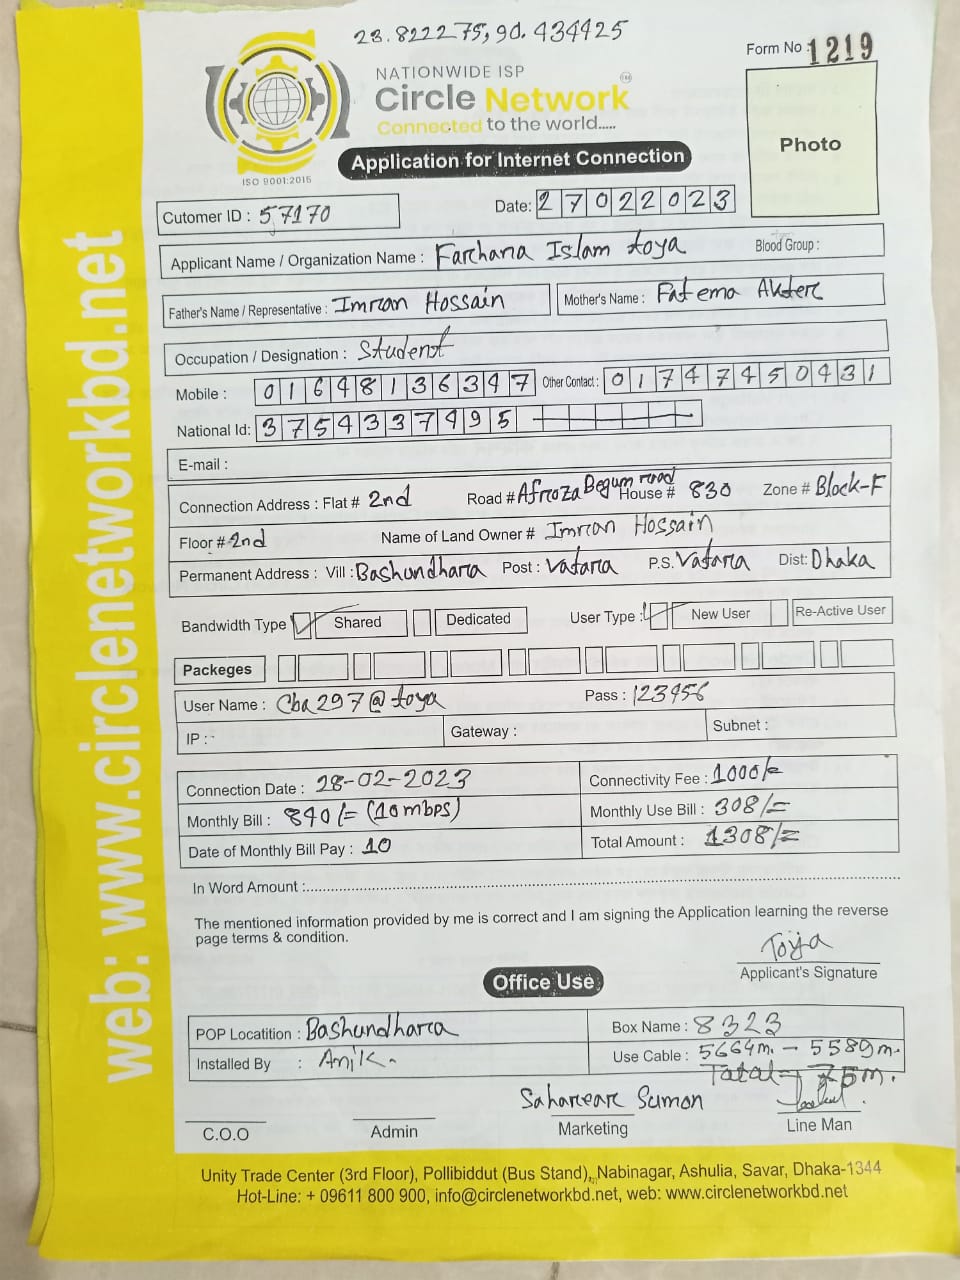 23.822275, 90.434425
Form No : 1219
NATIONWIDE ISP
Circle Network
Connected to the world.....
ISO 9001:2015
Application for Internet Connection
Photo
Cutomer ID : 57170
Date: 27022023
Applicant Name / Organization Name : Farhana Islam toya Blood Group :
Father's Name / Representative : Imran Hossain Mother's Name : Fatema Akter
Occupation / Designation : Student
Mobile : 01648136347 Other Contact : 01747450431
National Id: 3754337495
E-mail :
Connection Address : Flat # 2nd Road # Afroza Begum road House # 830 Zone # Block-F
Floor # 2nd Name of Land Owner # Imran Hossain
Permanent Address : Vill : Bashundhara Post : Vatara P.S. Vatara Dist: Dhaka
Bandwidth Type Shared Dedicated User Type : New User Re-Active User
Packeges
User Name : Cba297@toya Pass : 123456
IP : Gateway : Subnet :
Connection Date : 28-02-2023 Connectivity Fee : 1000/=
Monthly Bill : 840/= (10mbps) Monthly Use Bill : 308/=
Date of Monthly Bill Pay : 10 Total Amount : 1308/=
In Word Amount :
The mentioned information provided by me is correct and I am signing the Application learning the reverse
page terms & condition.
Toya
Applicant's Signature
Office Use
POP Locatition : Bashundhara Box Name : 8323
Installed By : Anik. Use Cable : 5664m. - 5589m.
Tatal- 75m.
Sahareare Sumon
C.O.O Admin Marketing Line Man
Unity Trade Center (3rd Floor), Pollibiddut (Bus Stand), Nabinagar, Ashulia, Savar, Dhaka-1344
Hot-Line: + 09611 800 900, info@circlenetworkbd.net, web: www.circlenetworkbd.net
web: www.circlenetworkbd.net